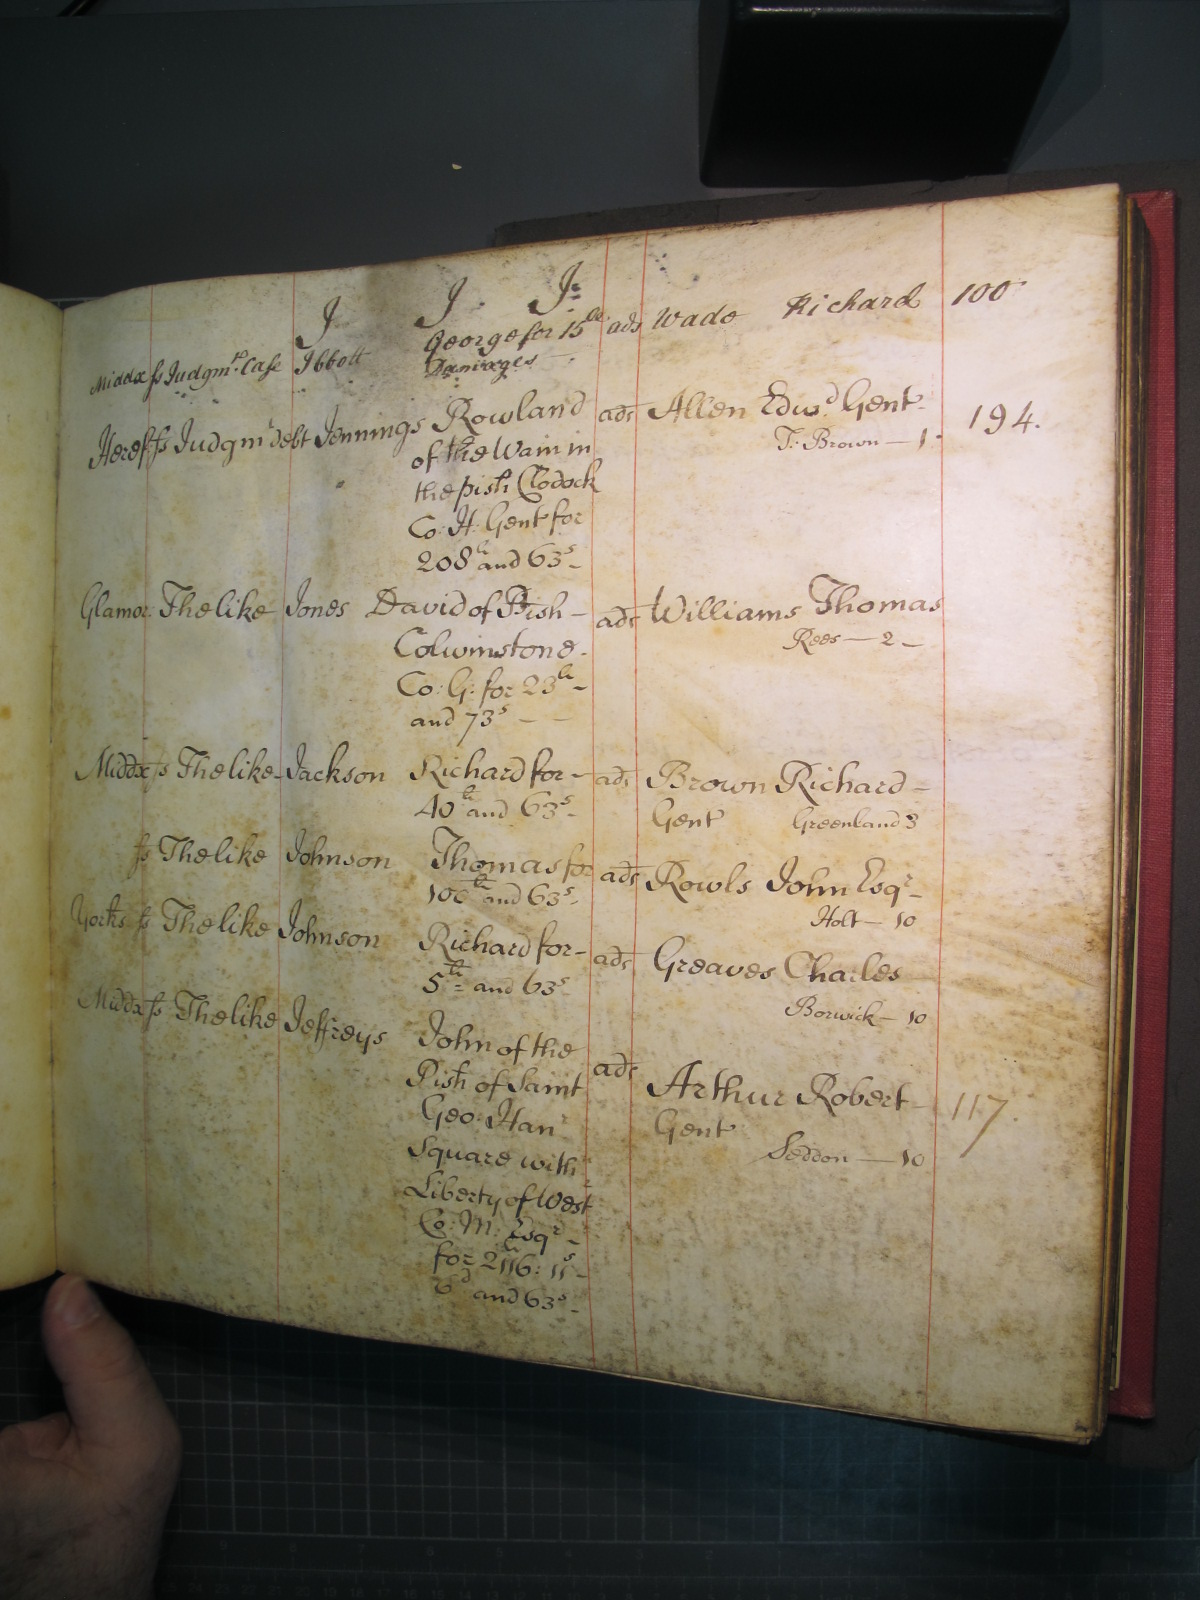 J J J:
Middx ss Judgmt. Case Ibbott George for 15li ads Wade Richard 100
Damages
Hereff ss Judgmt debt Jennings Rowland ads Allen Edwd Gent. 194.
of the Wain in T: Brown — 1.
the pish Clodock
Co: H: Gent for
208li and 63s
Glamor: The like Jones David of Pish ads Williams Thomas
Colwinstone. Rees — 2
Co: G: for 23li
and 73s
Middx ss The like Jackson Richard for ads Brown Richard
40li and 63s Gent Greenland 3
ss The like Johnson Thomas for ads Rowls John Esqr
100li and 63s Holt — 10
Yorks ss The like Johnson Richard for ads Greaves Charles
5li and 63s Borwick — 10
Middx ss The like Jeffreys John of the ads Arthur Robert 117.
Pish of Saint Gent
Geo: Han Seddon — 10
Square with
Liberty of West
Co: M: Esqr
for 2116li: 11s
6d and 63s